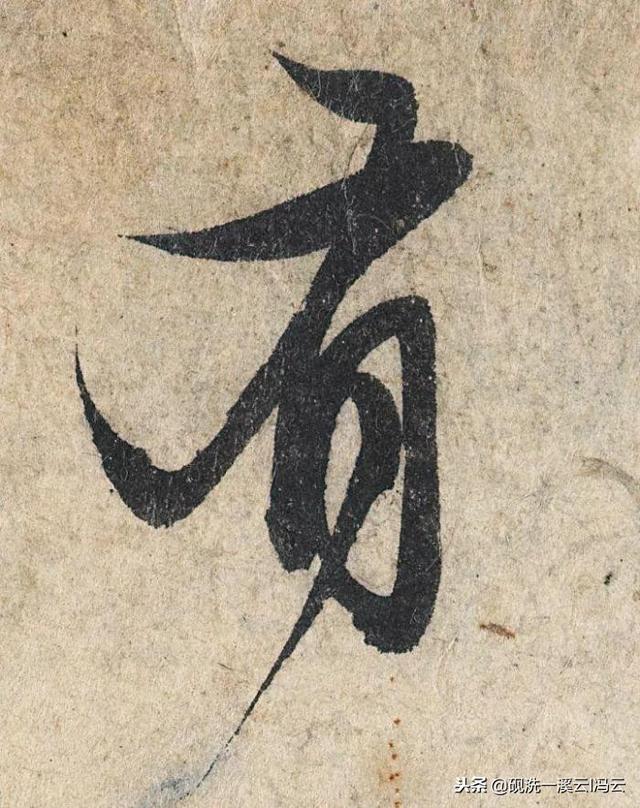 有
头条 @砚洗一溪云I冯云